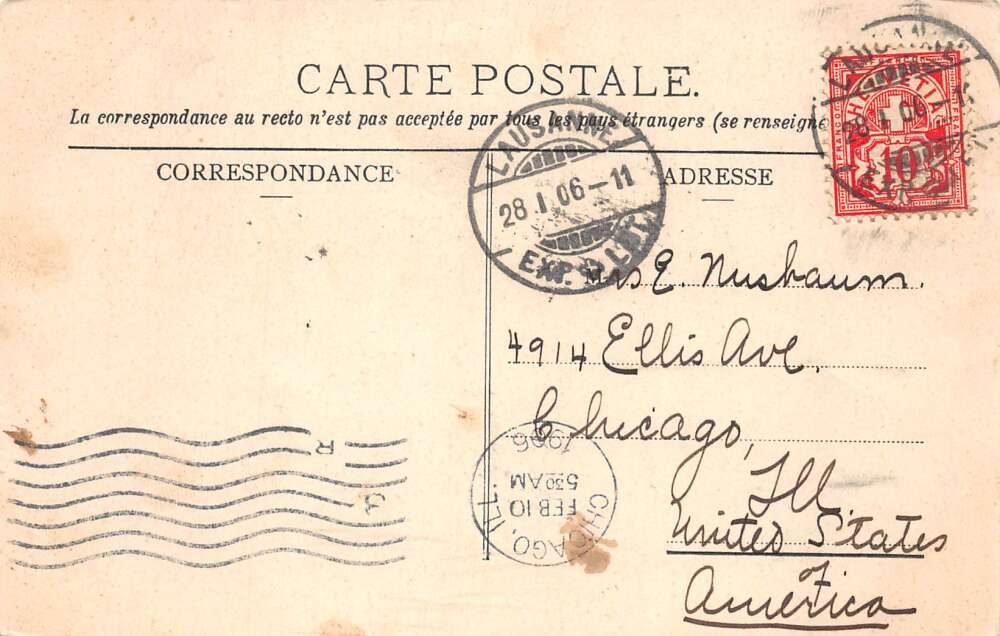 CARTE POSTALE.
La correspondance au recto n'est pas acceptée par tous les pays étrangers (se renseigne
CORRESPONDANCE
ADRESSE
LAUSANNE
28.I.06-11
EXP. LET
FRANCO
HELVETIA
10
28.I.06
Mrs E. Nusbaum.
4914 Ellis Ave.
Chicago,
Ill
United States
of
America
CHICAGO, ILL.
FEB 10
5 30 AM
1906
R